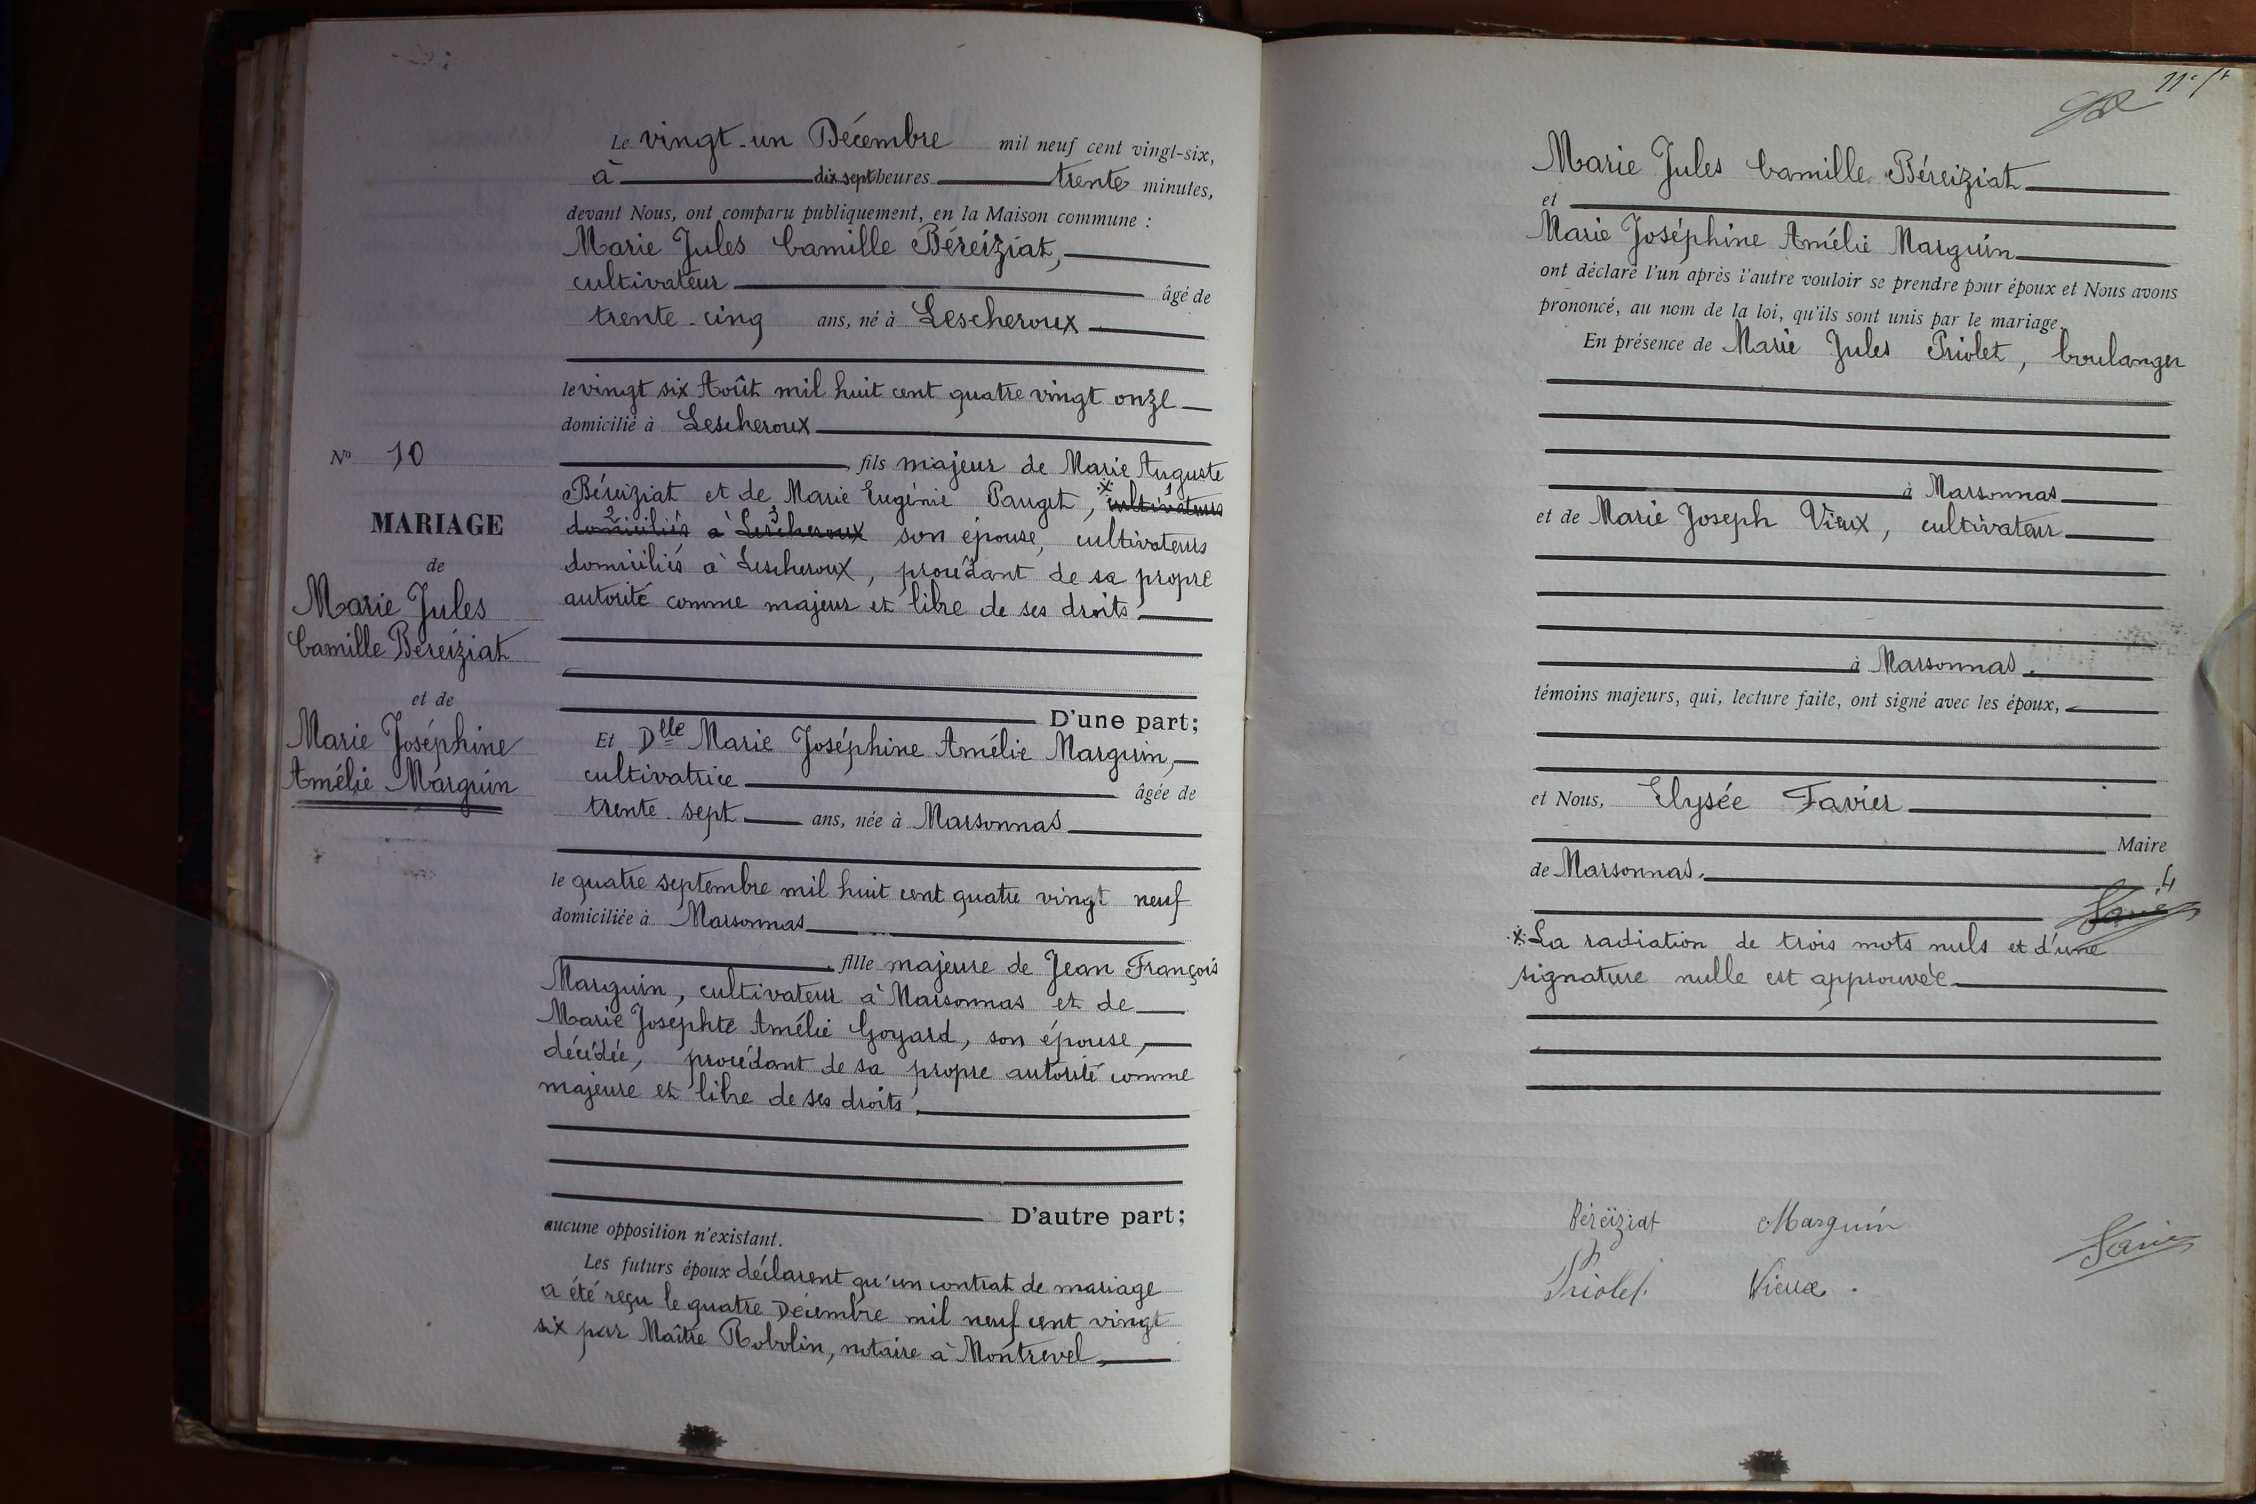 Le vingt-un Décembre mil neuf cent vingt-six,
à dix sept heures trente minutes,
devant Nous, ont comparu publiquement, en la Maison commune :
Marie Jules Camille Béreiziat,
cultivateur âgé de
trente-cinq ans, né à Lescheroux
le vingt six Août mil huit cent quatre vingt onze
domicilié à Lescheroux
, fils majeur de Marie Auguste
Béreiziat et de Marie Eugénie Pauget, x cultivateurs 1
domiciliés 2 à Lescheroux 3 son épouse, cultivateurs
domiciliés à Lescheroux, procédant de sa propre
autorité comme majeur et libre de ses droits
D'une part;
Et Dlle Marie Joséphine Amélie Marguin,
cultivatrice âgée de
trente-sept ans, née à Marsonnas
le quatre septembre mil huit cent quatre vingt neuf
domiciliée à Marsonnas
, fille majeure de Jean François
Marguin, cultivateur à Marsonnas et de
Marie Josephte Amélie Goyard, son épouse,
décédée, procédant de sa propre autorité comme
majeure et libre de ses droits,
D'autre part;
aucune opposition n'existant.
Les futurs époux déclarent qu'un contrat de mariage
a été reçu le quatre Décembre mil neuf cent vingt
six par Maître Robolin, notaire à Montrevel,
No 10
MARIAGE
de
Marie Jules
Camille Béreiziat
et de
Marie Joséphine
Amélie Marguin
Marie Jules Camille Béreiziat
et
Marie Joséphine Amélie Marguin
ont déclaré l'un après l'autre vouloir se prendre pour époux et Nous avons
prononcé, au nom de la loi, qu'ils sont unis par le mariage.
En présence de Marie Jules Priolet, boulanger
à Marsonnas
et de Marie Joseph Vieux, cultivateur
à Marsonnas.
témoins majeurs, qui, lecture faite, ont signé avec les époux,
et Nous, Elysée Favier
Maire
de Marsonnas.
4
x La radiation de trois mots nuls et d'une
signature nulle est approuvée
Béreïziat Marguin
Priolet Vieux.
Favier